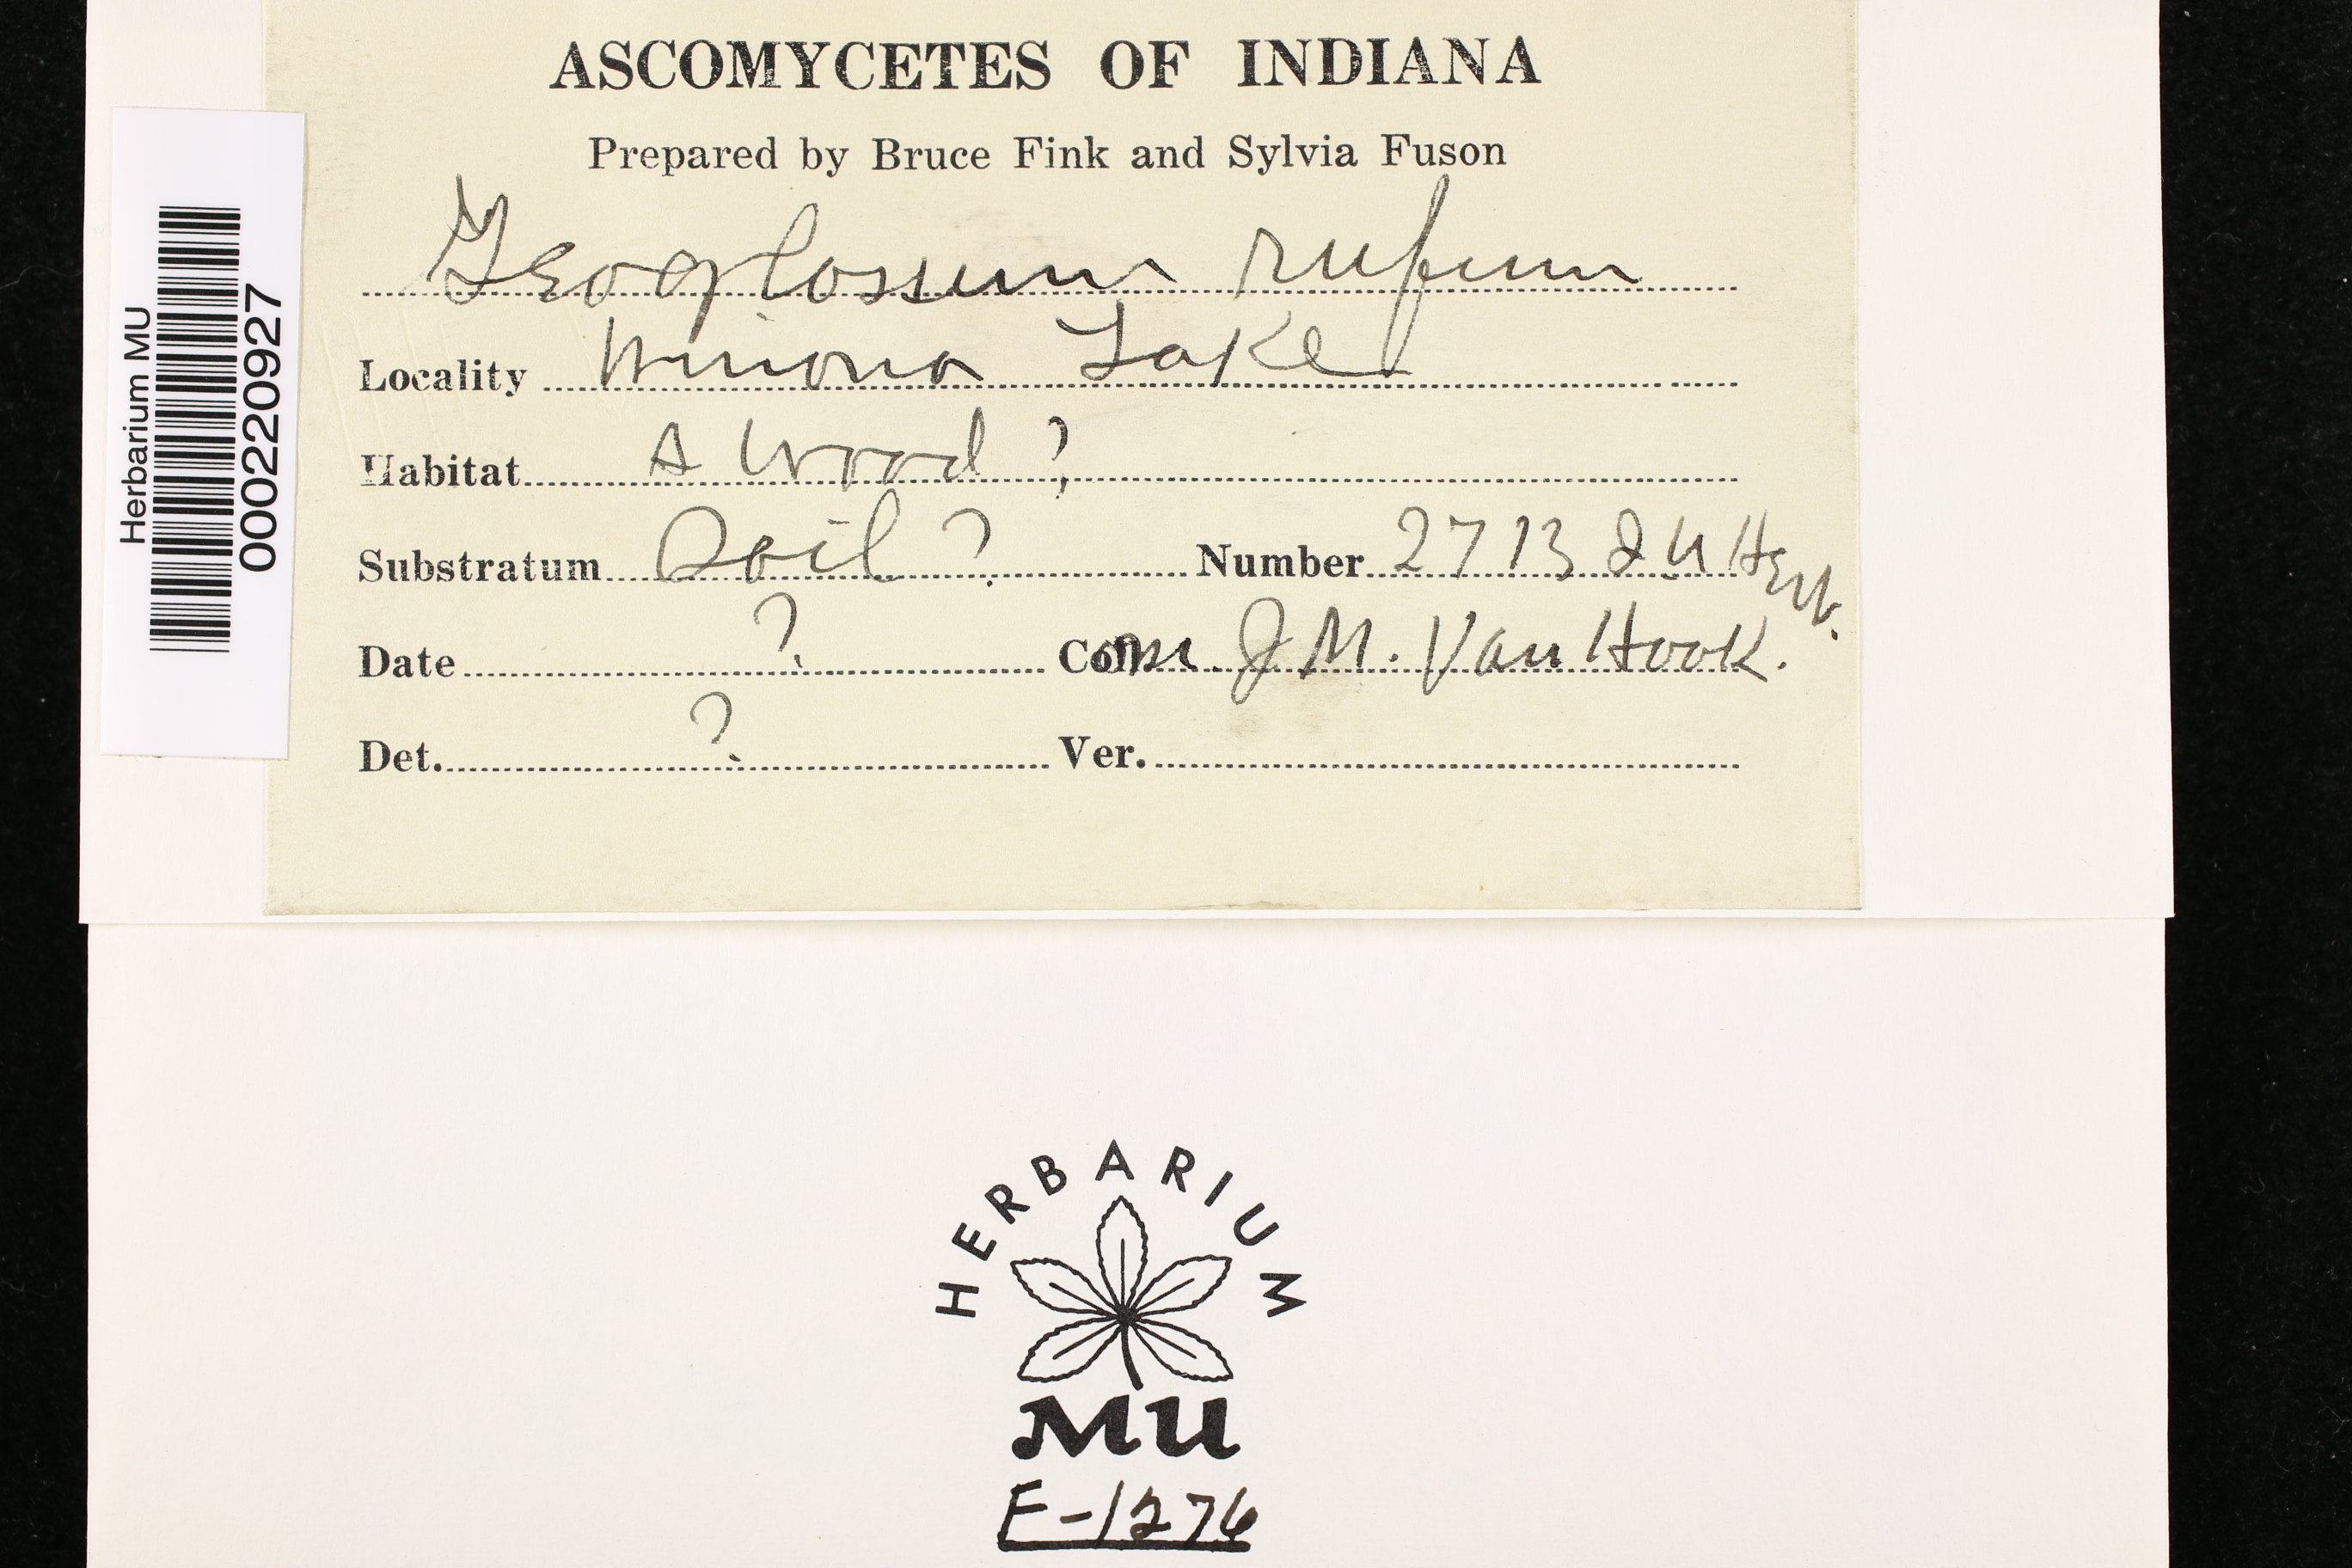 ASCOMYCETES OF INDIANA
Prepared by Bruce Fink and Sylvia Fuson
Geoglossum rufum
Locality Winona Lake
Habitat A Wood ?
Substratum Soil ? Number 2713 I U Herb.
Date ? Com. J. M. Van Hook.
Det. ? Ver.
Herbarium MU
000220927
HERBARIUM
MU
F-1276